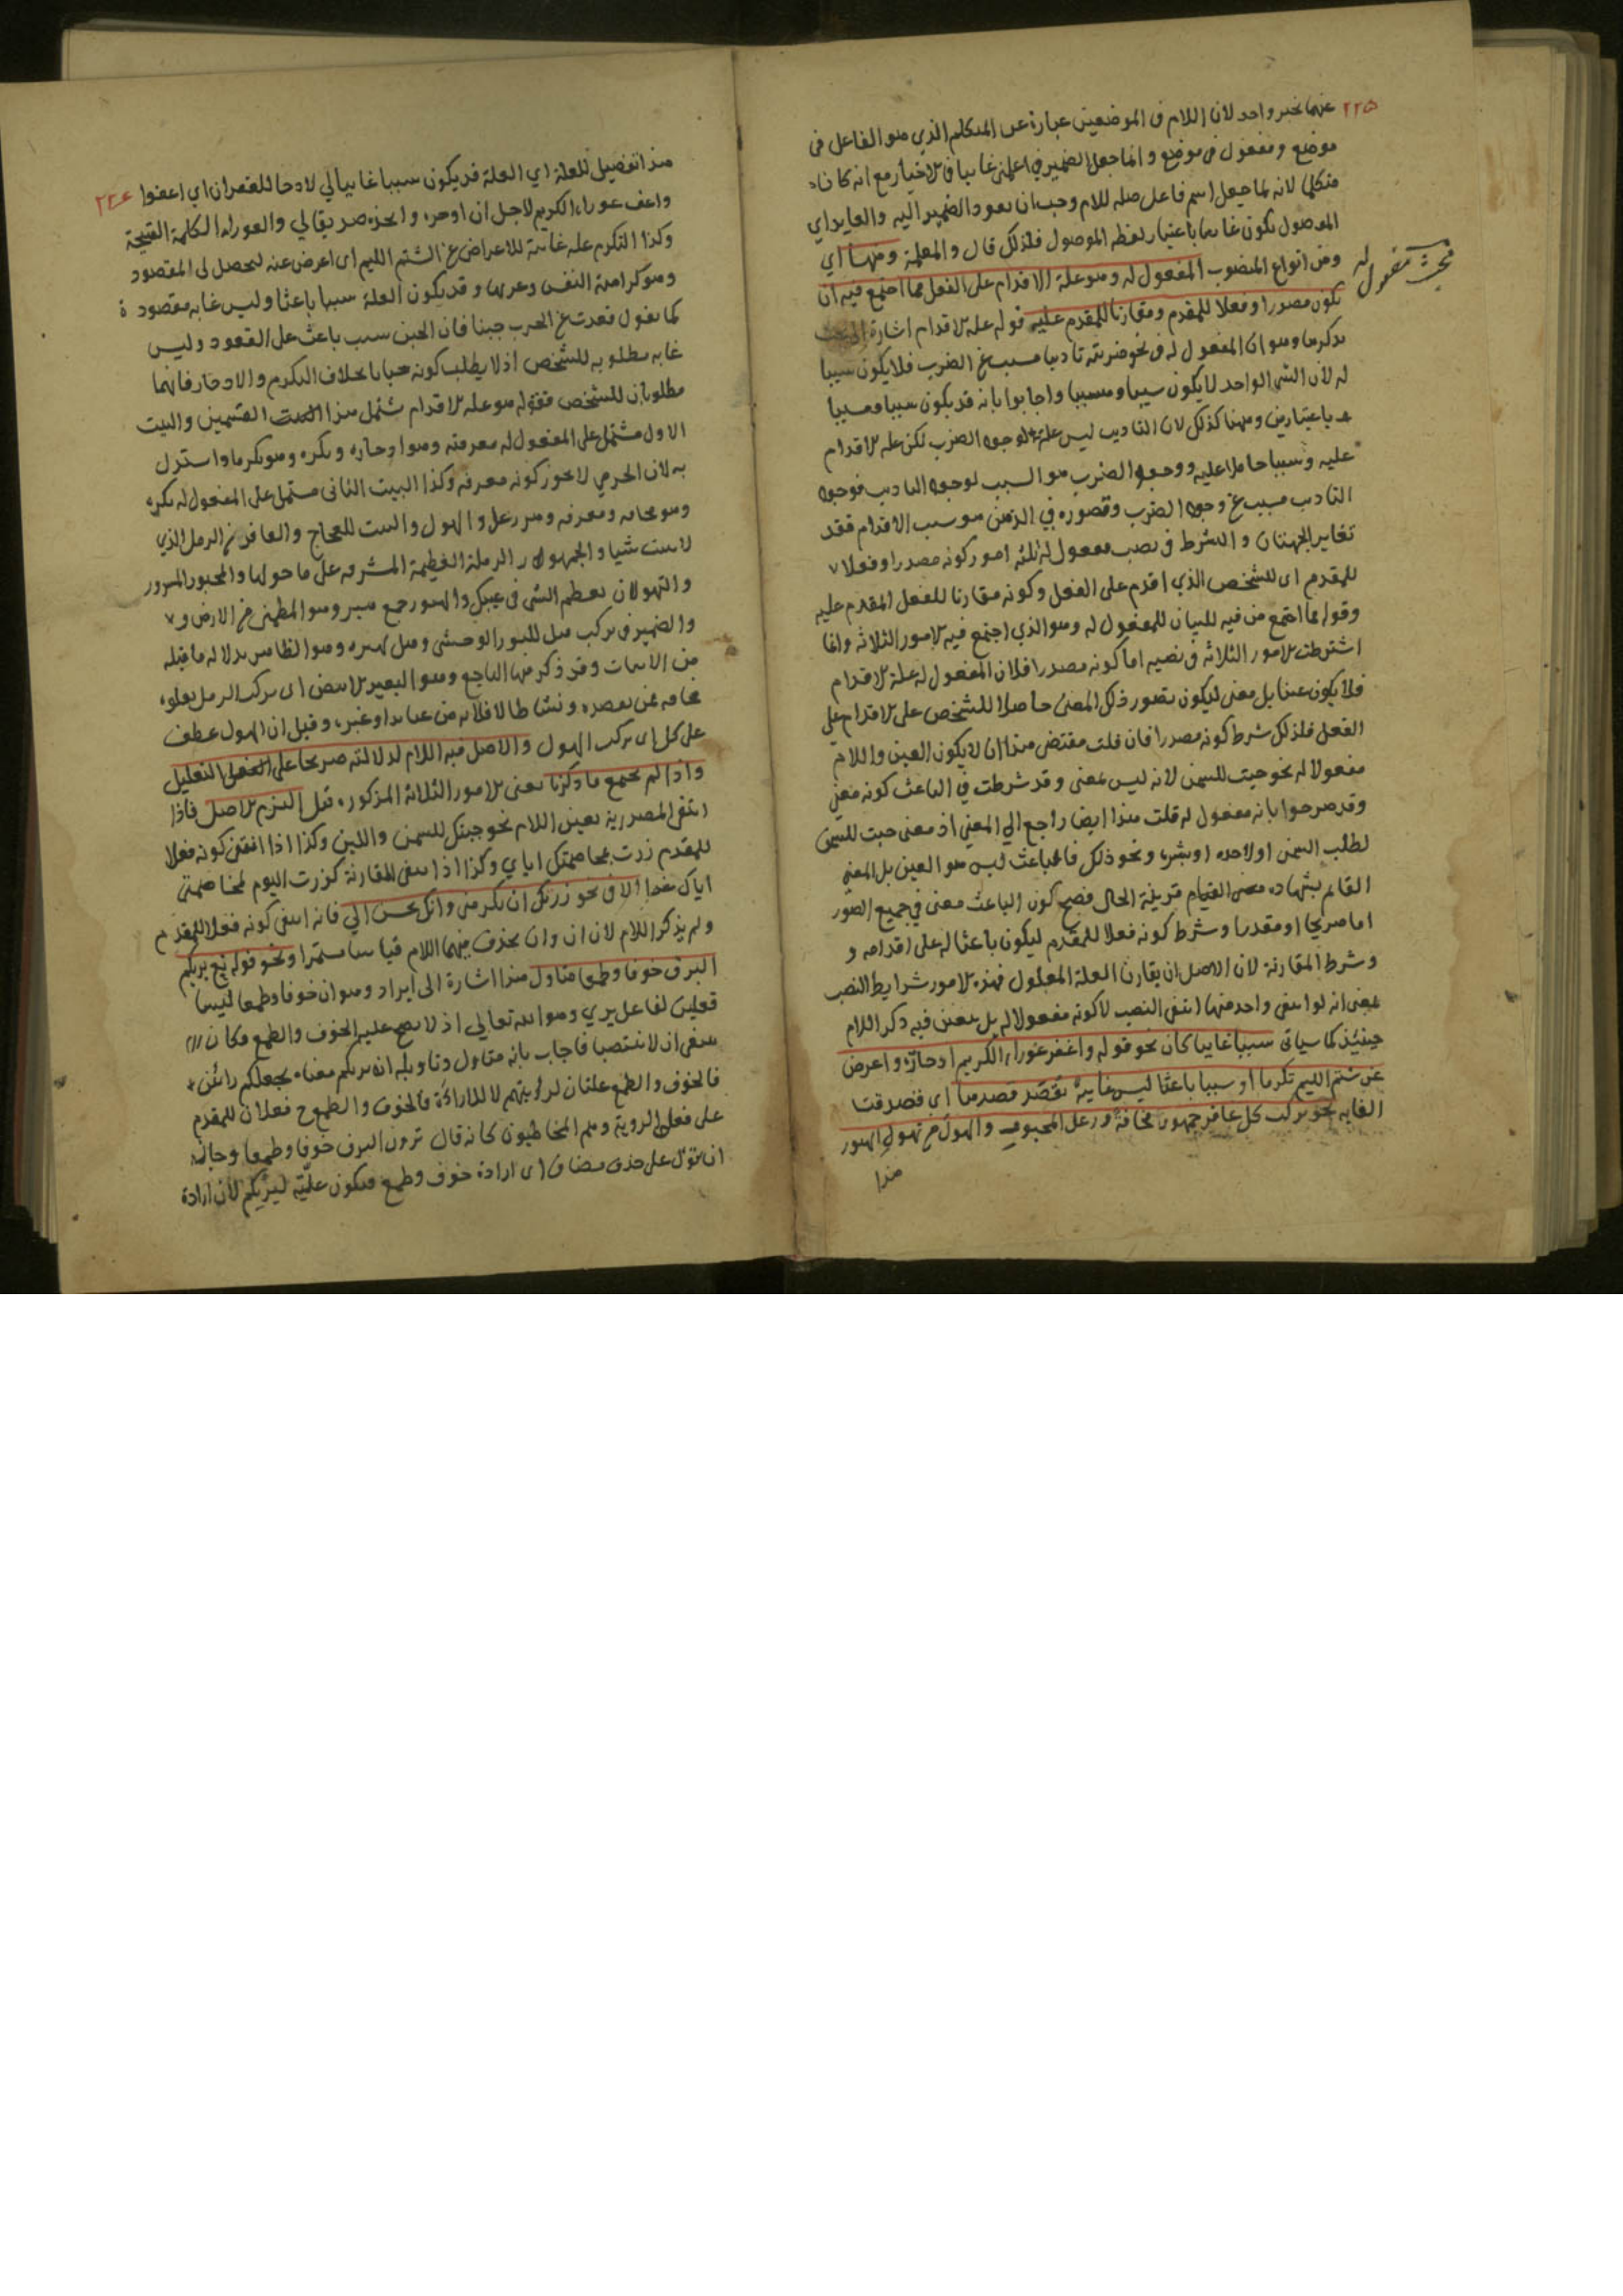 ٢٢٥
عنهما بخبر واحد لان اللام في الموضعين عبارة عن المتكلم الذي هو الفاعل في
موضع ومفعول في موضع وانما جعل الضمير في اعلمنى غايبا في الاخبار مع انه كان
متكلما لانه لما جعل اسم فاعل صله للام وجب ان يعود الضمير اليه والعايد اي
الموصول يكون غايبا باعتبار لفظه الموصول فلذلك قال والمعلمة ومنها اي
ومن انواع المنصوب المفعول له وهو علة الاقدام على الفعل مما اجتمع فيه ان
يكون مصدرا وفعلا للمقدم ومقارنا للمقدم عليه قوله علة الاقدام اشارة الى بحث
يذكر ما وهو ان المفعول له في نحو ضربته تاديبا مسبب عن الضرب فلا يكون سببا
له لان الشي الواحد لا يكون سببا ومسببا واجابوا بانه قد يكون سببا ومسببا
باعتبارين وههنا كذلك لان التاديب ليس علة لوجود الضرب لكن علة الاقدام
عليه وسببا حاملا عليه ووجود الضرب هو السبب لوجود التاديب فوجود
التاديب مسبب عن وجود الضرب وتصوره في الذهن هو سبب الاقدام فقد
تغاير الجهتان والشرط في نصب مفعول له ثلثه امور كونه مصدرا وفعلا
للمقدم اى للشخص الذي اقدم على الفعل وكونه مقارنا للفعل المقدم عليه
وقوله مما اجتمع من فيه للبيان للمفعول له وهو الذي اجتمع فيه الامور الثلاثة وانما
اشترطت الامور الثلاثة في نصبه اما كونه مصدرا فلان المفعول له علة الاقدام
فلا يكون عينا بل معنى ليكون تصور ذلك المعنى حاصلا للشخص على الاقدام على
الفعل فلذلك شرط كونه مصدرا فان قلت مقتضى هذا ان لا يكون العين واللام
مفعولا له نحو جيت للسمن لانه ليس بمعنى وقد شرطت في الباعث كونه معنى
وقد صرحوا بانه مفعول له قلت هذا ايضا راجع الى المعنى اذ معنى جيت للسمن
لطلب السمن او لاخذه او بشره ونحو ذلك فالباعث ليس هو العين بل المعنى
القايم بشهادة قرينة الحال فصح كون الباعث معنى في جميع الصور
اما صريحا او مقدرا وشرط كونه فعلا للمقدم ليكون باعثا له على اقدامه و
وشرط المقارنة لان الاصل ان يقارن العلة المعلول فهذه الامور شرايط النصب
بمعنى انه لو انتفى واحد منها انتفى النصب لا كونه مفعولا له بل يتعين فيه ذكر اللام
حينئذ كما سياتى سببا غاييا كان نحو قوله واغفر عوراء الكريم ادخاره واعرض
عن شتم الليم تكرما او سببا باعثا ليس غاية تقصد قصدها اى قصدت
الغاية نحو يركب كل عاقر جمهور مخافة وزعل المحبور والهول من تهول الهبور
هذا
مبحث مفعول له
٢٢٤
هذا تفصيل للعلة اي العلة قد يكون سببا غاييا كالادخار للغفران اي اعفوا
واعف عوراء الكريم لاجل ان ادخره واتخذه صديقا لي والعوراء الكلمة القبيحة
وكذا التكرم علة غايية للاعراض عن الشتم الليم اى اعرض عنه ليحصل لى المقصود
وهو كرامة النفس وعزها وقد يكون العلة سببا باعثا وليس غاية مقصودة
كما نقول قعدت عن الحرب جبنا فان الجبن سبب باعث على القعود وليس
غاية مطلوبه للشخص اذ لا يطلب كونه جبانا بخلاف التكرم والادخار فانهما
مطلوبان للشخص فقوله هو علة الاقدام شمل هذا القسمين والبيت
الاول مشتمل على المفعول له معرفته وهو ادخاره ونكره وهو تكرما واستدل
به لان الجرمي لا يجوز كونه معرفة وكذا البيت الثانى مشتمل على المفعول له نكره
وهو مخافة ومعرفه وهو زعل والهول والبيت للعجاج والعاقر من الرمل الذي
لا ينبت شيا والجمهور الرملة العظيمة المشرفه على ما حولها والمحبور المسرور
والتهول ان يعظم الشى في عينك والهبور جمع هبر وهو المطمئن من الارض و
والضمير في يركب قيل للثور الوحشى وهو الظاهر بدلالة ما قبله
من الابيات وقد ذكر فيها وهو البعير الابيض اى يركب الرمل يعلوه
مخافة ممن يقصده ونشاطا وقيل ان الهول عطف
على كل اى يركب الهول والاصل فيه اللام لدلالته صريحا على الفعل التعليل
واذا لم يجتمع ما ذكرنا يعنى الامور الثلاثة المذكورة قيل التزم الاصل فاذا
انتفى المصدرية تعين اللام نحو جيتك للسمن واللبن وكذا اذا انتفى كونه فعلا
للمقدم زرت مخاصمتك اياي وكذا اذا انتفى المقارنة كزرت اليوم لمخاصمتى
اياك غدا الا في نحو زرتك ان تكرمنى وانك تحسن الي فانه انتفى كونه فعلا للمقدم
ولم يذكر اللام لان ان وان يحذف منهما اللام قياسا مستمرا ونحو قوله تع يريكم
البرق خوفا وطمعا متاول هذا اشارة الى ايراد وهو ان خوفا وطمعا ليسا
فعلين لفاعل يري وهو الله تعالي اذ لا يصح عليه الخوف والطمع فكان
ينبغى ان لا ينتصبا فاجاب بانه متاول وتاويله انه يريكم معناه يجعلكم رائين
فالخوف والطمع علتان لرؤيتهم لا للاراءة فالخوف والطمع ح فعلان للمقدم
على فعل الروية وهم المخاطبون كانه قال ترون البرق خوفا وطمعا وجاز
ان يأول على حذف مضاف اى ارادة خوف وطمع فيكون علته ليريكم لان ارادة